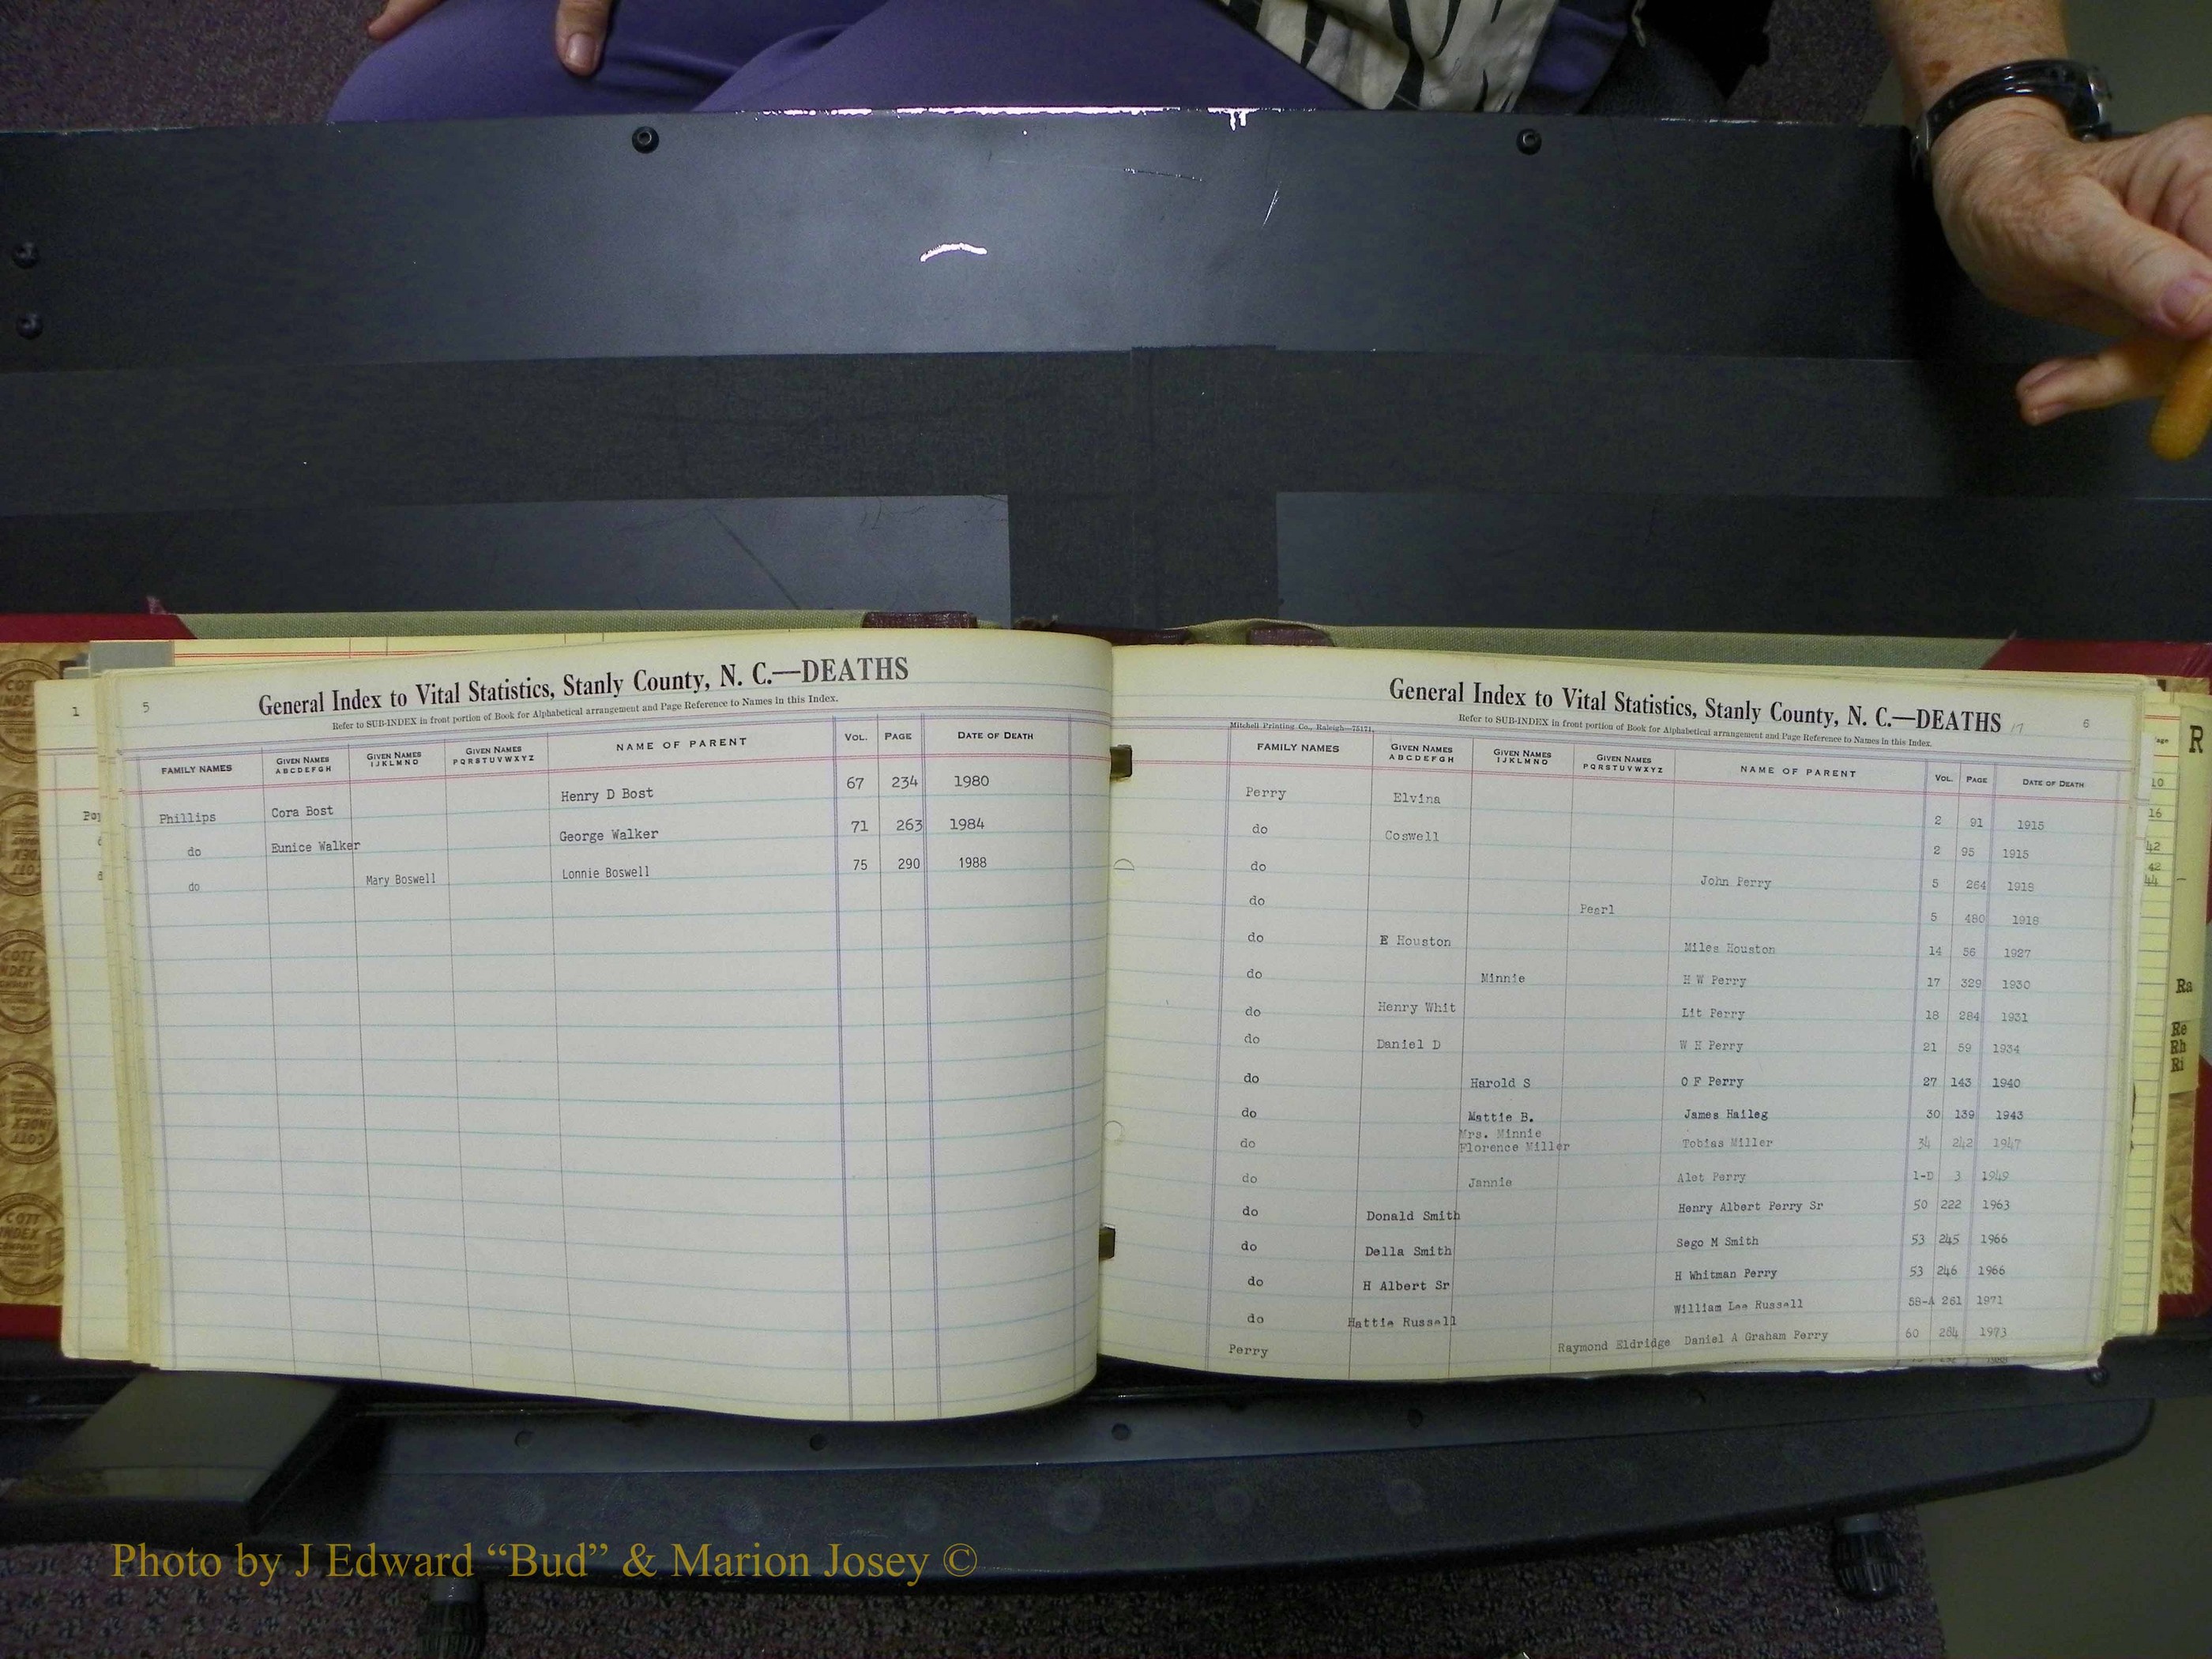 5
General Index to Vital Statistics, Stanly County, N. C.—DEATHS
Refer to SUB-INDEX in front portion of Book for Alphabetical arrangement and Page Reference to Names in this Index.
FAMILY NAMES GIVEN NAMES ABCDEFGH GIVEN NAMES IJKLMNO GIVEN NAMES PQRSTUVWXYZ NAME OF PARENT VOL. PAGE DATE OF DEATH
Phillips Cora Bost Henry D Bost 67 234 1980
do Eunice Walker George Walker 71 263 1984
do Mary Boswell Lonnie Boswell 75 290 1988
General Index to Vital Statistics, Stanly County, N. C.—DEATHS 17 6
Refer to SUB-INDEX in front portion of Book for Alphabetical arrangement and Page Reference to Names in this Index.
Mitchell Printing Co., Raleigh—75171
FAMILY NAMES GIVEN NAMES ABCDEFGH GIVEN NAMES IJKLMNO GIVEN NAMES PQRSTUVWXYZ NAME OF PARENT VOL. PAGE DATE OF DEATH
Perry Elvina 2 91 1915
do Coswell 2 95 1915
do John Perry 5 264 1918
do Pearl 5 480 1918
do E Houston Miles Houston 14 56 1927
do Minnie H W Perry 17 329 1930
do Henry Whit Lit Perry 18 284 1931
do Daniel D W H Perry 21 59 1934
do Harold S O F Perry 27 143 1940
do Mattie B. James Haileg 30 139 1943
do Mrs. Minnie Florence Miller Tobias Miller 34 242 1947
do Jannie Alet Perry 1-D 3 1949
do Donald Smith Henry Albert Perry Sr 50 222 1963
do Della Smith Sego M Smith 53 245 1966
do H Albert Sr H Whitman Perry 53 246 1966
do Hattie Russell William Lee Russell 58-A 261 1971
Perry Raymond Eldridge Daniel A Graham Perry 60 284 1973
1
R
10
16
42
42
44
Ra
Re
Rh
Ri
Photo by J Edward “Bud” & Marion Josey ©